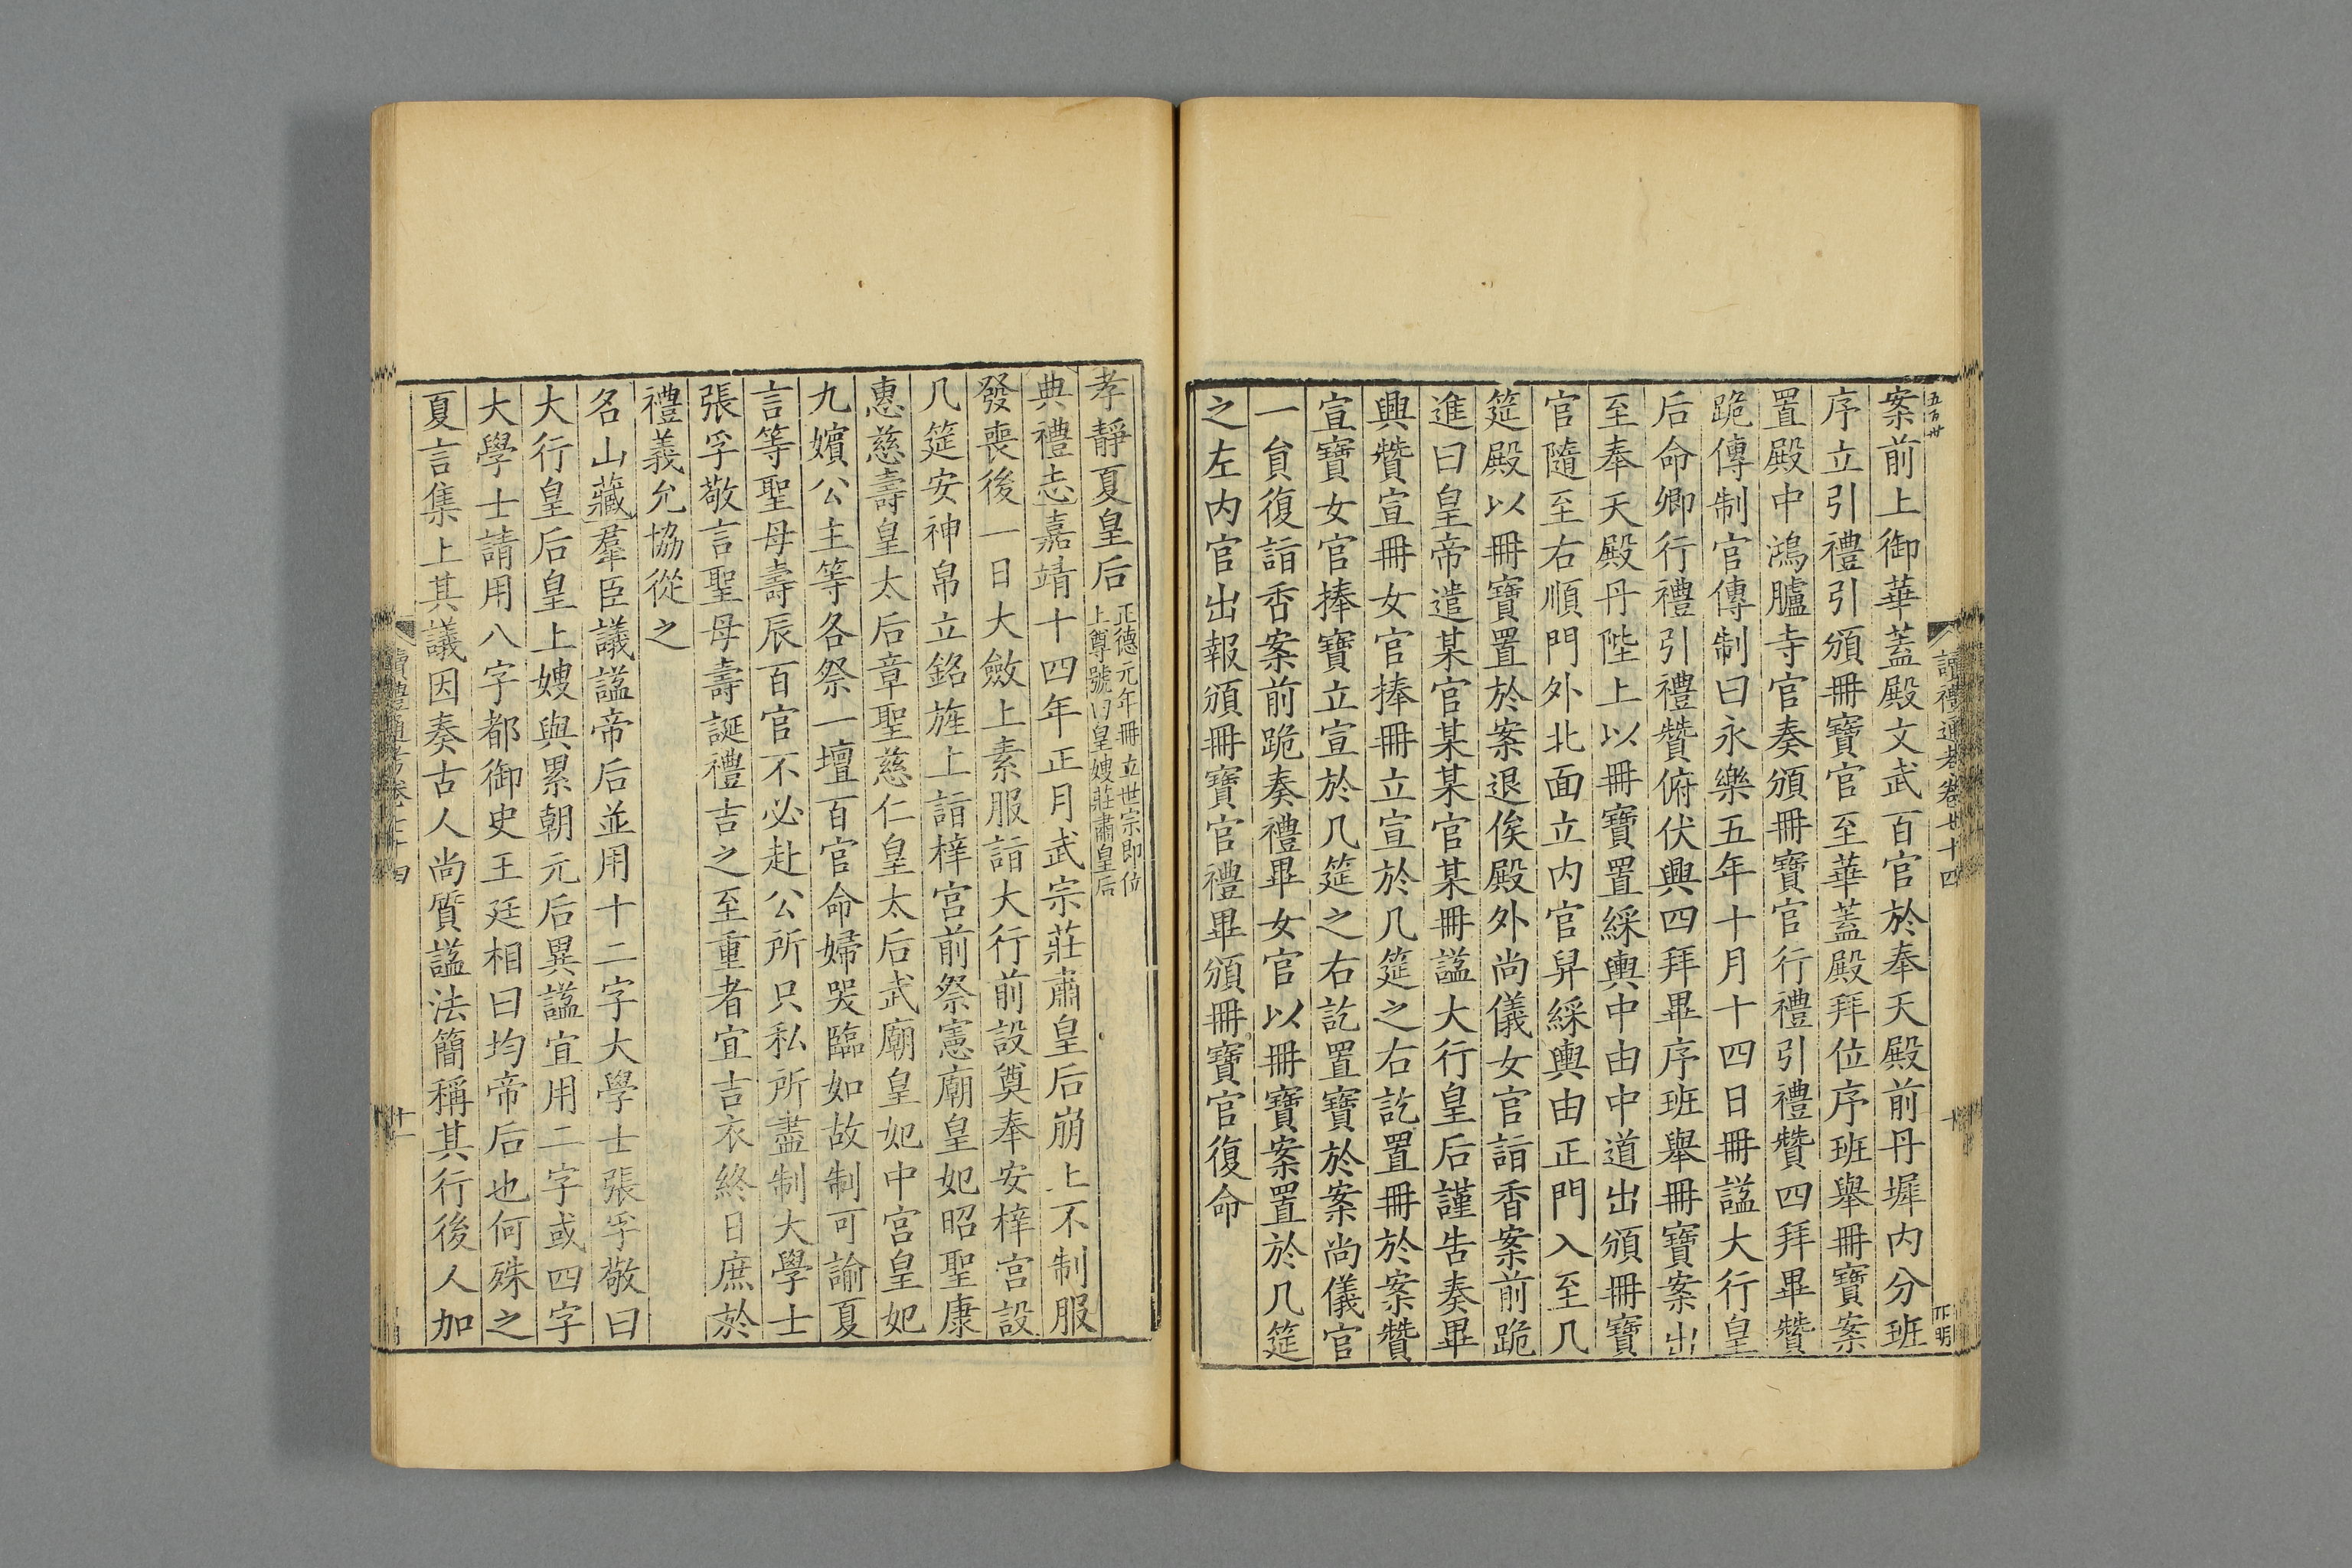 案前上御華蓋殿文武百官於奉天殿前丹墀内分班
序立引禮引頒冊寶官至華蓋殿拜位序班舉冊寶案
置殿中鴻臚寺官奏頒冊寶官行禮引禮贊四拜畢贊
跪傳制官傳制曰永樂五年十月十四日冊諡大行皇
后命卿行禮引禮贊俯伏興四拜畢序班舉冊寶案出
至奉天殿丹陛上以冊寶置綵輿中由中道出頒冊寶
官隨至右順門外北面立内官舁綵輿由正門入至几
筵殿以冊寶置於案退俟殿外尚儀女官詣香案前跪
進曰皇帝遣某官某某官某冊諡大行皇后謹告奏畢
興贊宣冊女官捧冊立宣於几筵之右訖置冊於案贊
宣寶女官捧寶立宣於几筵之右訖置寶於案尚儀官
一員復詣香案前跪奏禮畢女官以冊寶案置於几筵
之左内官出報頒冊寶官禮畢頒冊寶官復命
孝靜夏皇后正德元年冊立世宗即位
上尊號曰皇嫂莊肅皇后
典禮志嘉靖十四年正月武宗莊肅皇后崩上不制服
發喪後一日大斂上素服詣大行前設奠奉安梓宮設
几筵安神帛立銘旌上詣梓宮前祭憲廟皇妃昭聖康
惠慈壽皇太后章聖慈仁皇太后武廟皇妃中宮皇妃
九嬪公主等各祭一壇百官命婦哭臨如故制可諭夏
言等聖母壽辰百官不必赴公所只私所盡制大學士
張孚敬言聖母壽誕禮吉之至重者宜吉衣終日庶於
禮義允協從之
名山藏羣臣議諡帝后並用十二字大學士張孚敬曰
大行皇后皇上嫂與累朝元后異諡宜用二字或四字
大學士請用八字都御史王廷相曰均帝后也何殊之
夏言集上其議因奏古人尚質諡法簡稱其行後人加